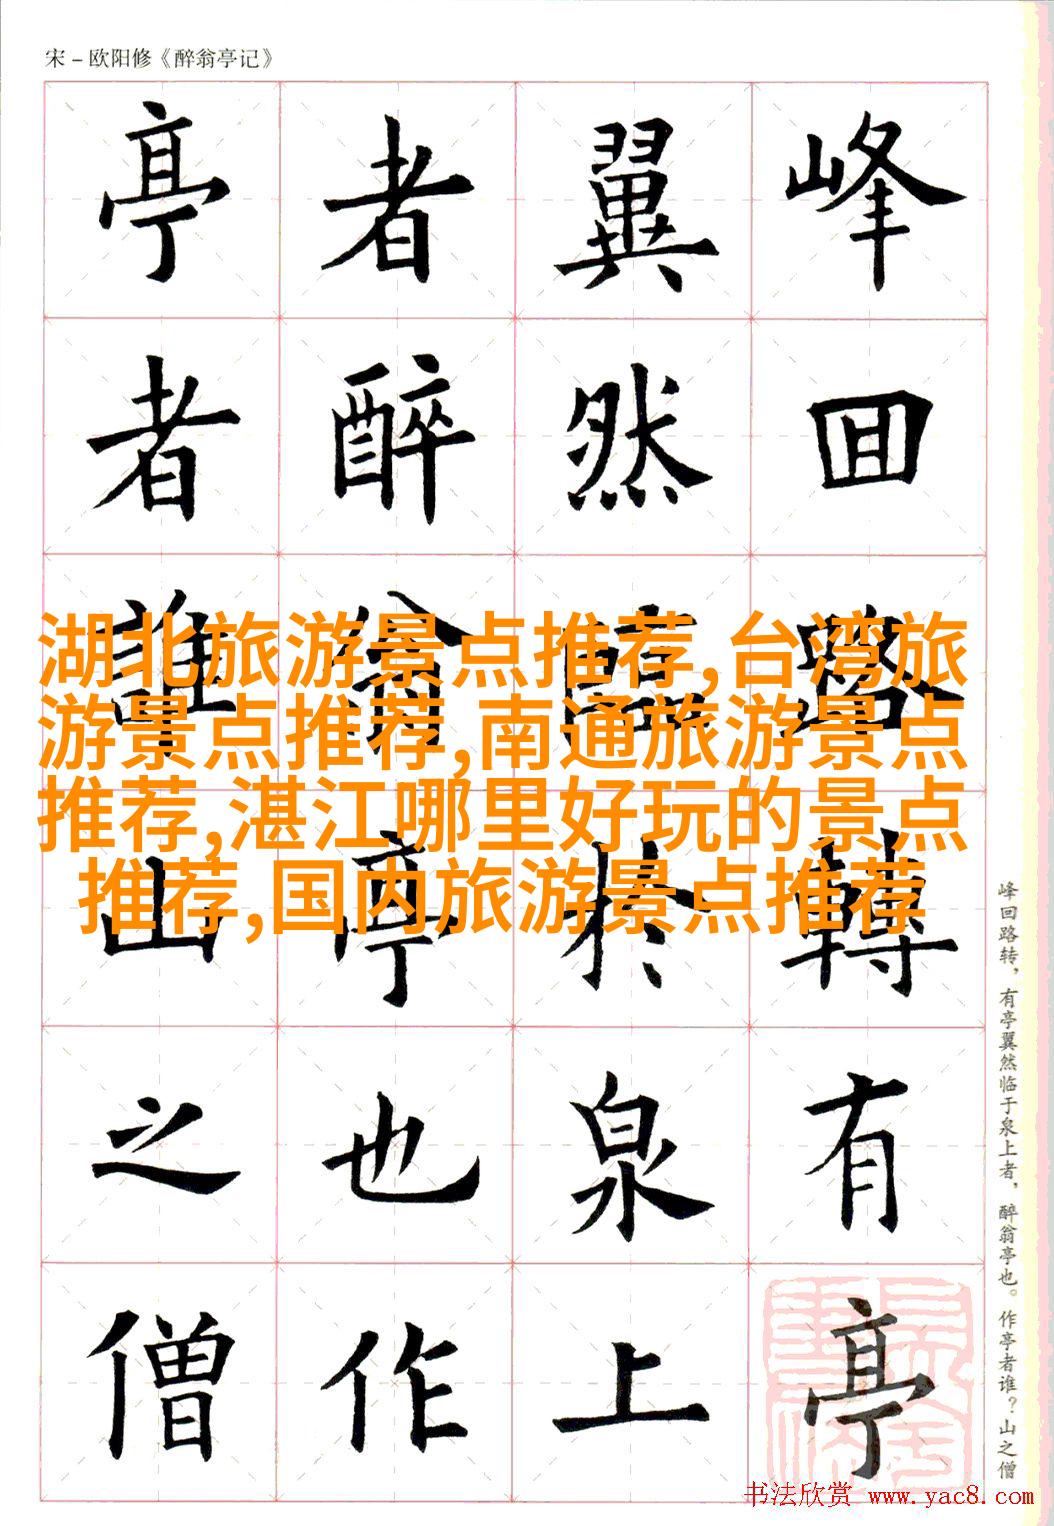 宋－欧阳修《醉翁亭记》
峰囬路轉有亭
翼然臨於泉上
者醉翁亭也作
亭者誰山之僧
湖北旅游景点推荐,台湾旅
游景点推荐,南通旅游景点
推荐,湛江哪里好玩的景点
推荐,国内旅游景点推荐
峰回路转，有亭翼然临于泉上者，醉翁亭也。作亭者谁？山之僧
书法欣赏 www.yac8.com